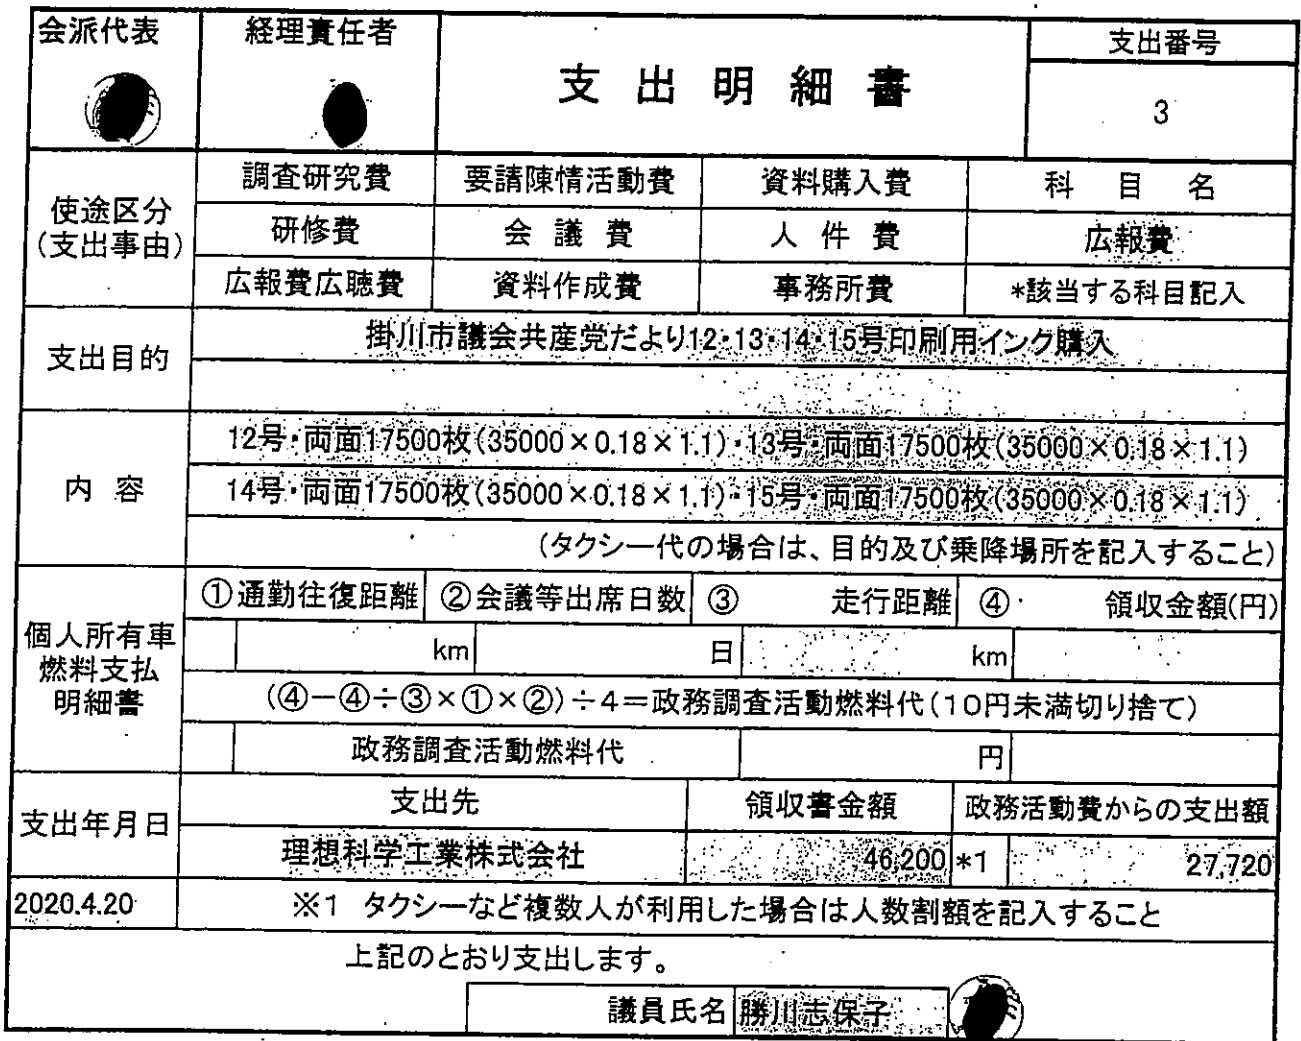 会派代表 経理責任者 支出明細書 支出番号
3
使途区分(支出事由) 調査研究費 要請陳情活動費 資料購入費 科目名
研修費 会議費 人件費 広報費
広報費広聴費 資料作成費 事務所費 *該当する科目記入
支出目的 掛川市議会共産党だより12・13・14・15号印刷用インク購入
内容 12号・両面17500枚(35000×0.18×1.1)・13号・両面17500枚(35000×0.18×1.1)
14号・両面17500枚(35000×0.18×1.1)・15号・両面17500枚(35000×0.18×1.1)
(タクシー代の場合は、目的及び乗降場所を記入すること)
個人所有車燃料支払明細書 ①通勤往復距離 ②会議等出席日数 ③ 走行距離 ④ 領収金額(円)
km 日 km
(④-④÷③×①×②)÷4=政務調査活動燃料代(10円未満切り捨て)
政務調査活動燃料代 円
支出年月日 支出先 領収書金額 政務活動費からの支出額
理想科学工業株式会社 46,200 *1 27,720
2020.4.20 ※1 タクシーなど複数人が利用した場合は人数割額を記入すること
上記のとおり支出します。
議員氏名 勝川志保子